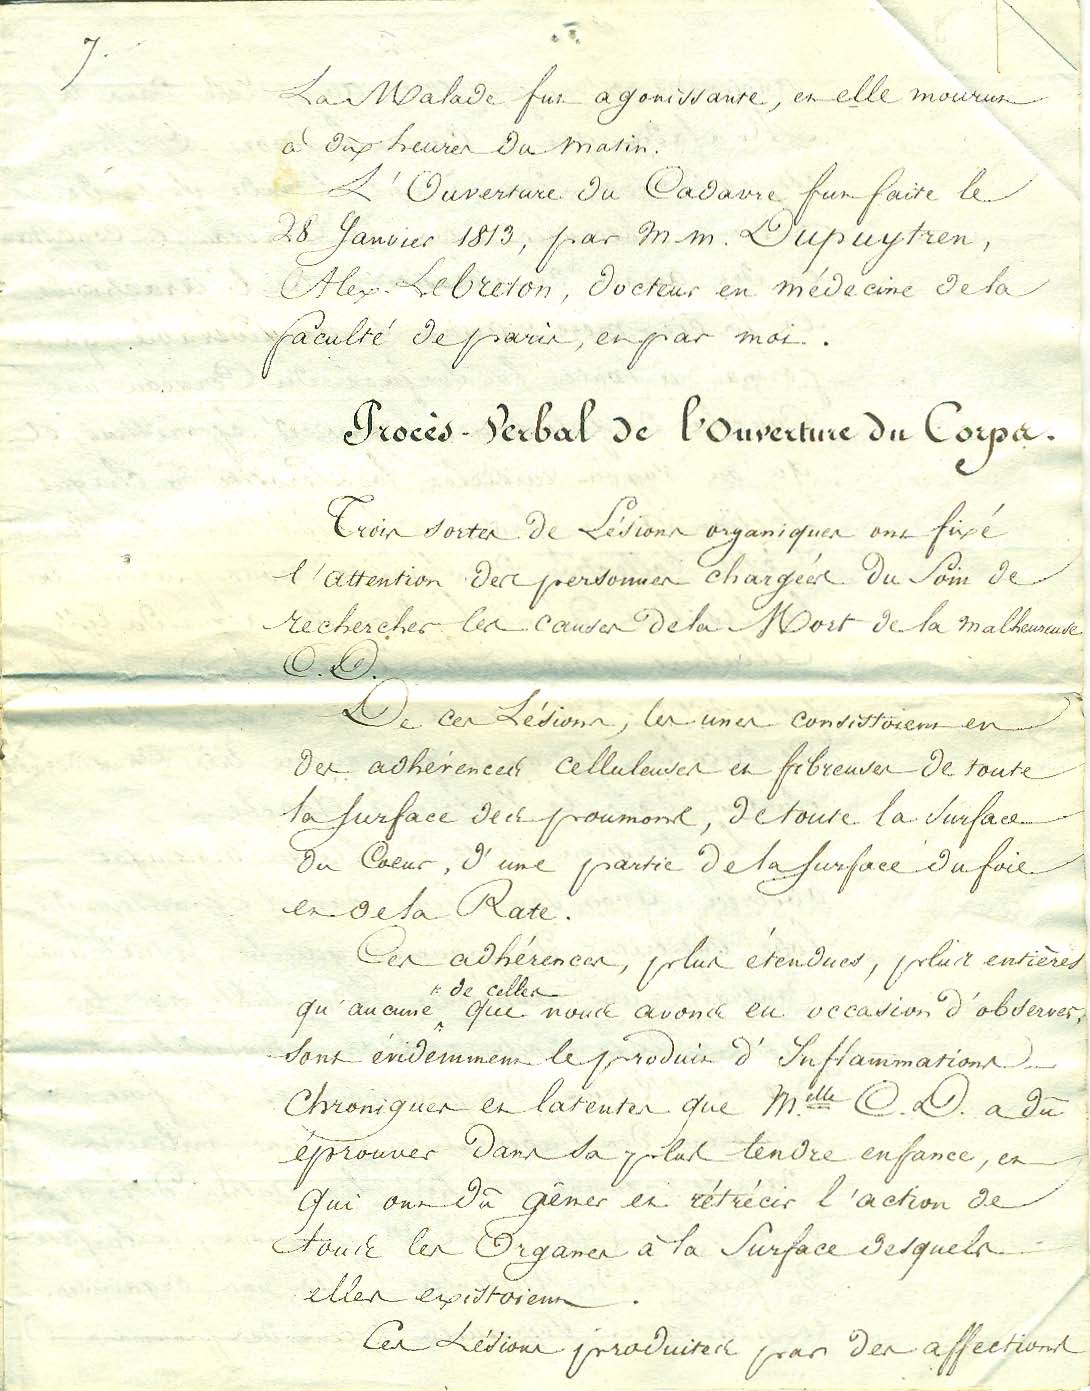 7.
La Malade fut agonissante, et elle mourut
à dix heures du matin.
L'Ouverture du Cadavre fut faite le
28 Janvier 1813, par m m. Dupuytren,
Alex. Lebreton, docteur en médecine de la
faculté de paris, et par moi.
Procès-Verbal de l'Ouverture du Corps.
Trois sortes de Lésions organiques ont fixé
l'attention des personnes chargées du Soin de
rechercher les causes de la Mort de la malheureuse
C. D.
De ces Lésions, les unes consistoient en
des adhérences celluleuses et fibreuses de toute
la surface des poumons, de toute la surface
du Coeur, d'une partie de la surface du foie
et de la Rate.
Ces adhérences, plus étendues, plus entières
de celles
qu'aucune que nous avons eu occasion d'observer,
sont évidemment le produit d'Inflammations
chroniques et latentes que M.elle C. D. a dû
éprouver dans sa plus tendre enfance, et
qui ont dû gêner et rétrécir l'action de
tous les Organes à la Surface desquels
elles existoient.
Ces Lésions produites par des affections